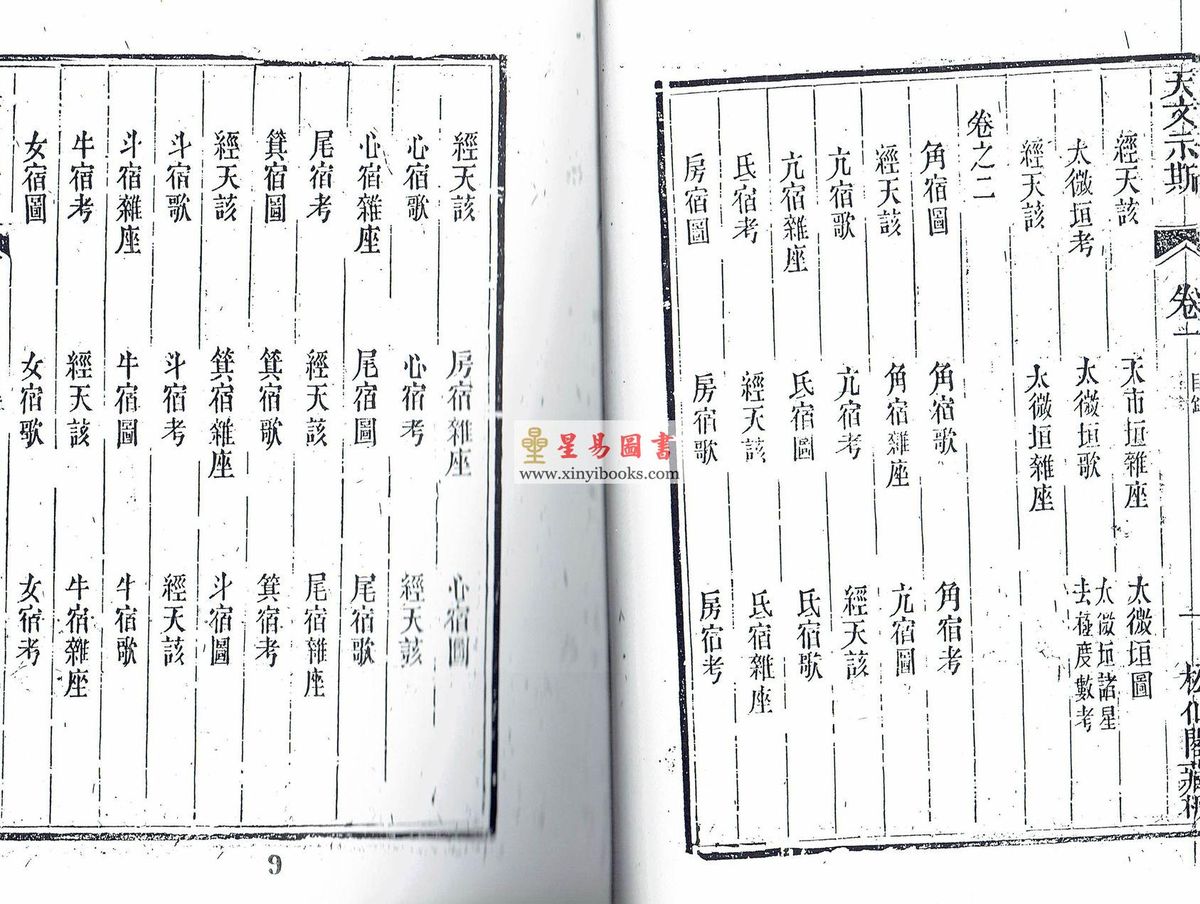 天文示斯
經天該 天市垣雜座 太微垣圖
太微垣考 太微垣歌 太微垣諸星
去極度數考
經天該 太微垣雜座
卷之二
角宿圖 角宿歌 角宿考
經天該 角宿雜座 亢宿圖
亢宿歌 亢宿考 經天該
亢宿雜座 氐宿圖 氐宿歌
氐宿考 經天該 氐宿雜座
房宿圖 房宿歌 房宿考
經天該 房宿雜座 心宿圖
心宿歌 心宿考 經天該
心宿雜座 尾宿圖 尾宿歌
尾宿考 經天該 尾宿雜座
箕宿圖 箕宿歌 箕宿考
經天該 箕宿雜座 斗宿圖
斗宿歌 斗宿考 經天該
斗宿雜座 牛宿圖 牛宿歌
牛宿考 經天該 牛宿雜座
女宿圖 女宿歌 女宿考
9
星易圖書
www.xinyibooks.com